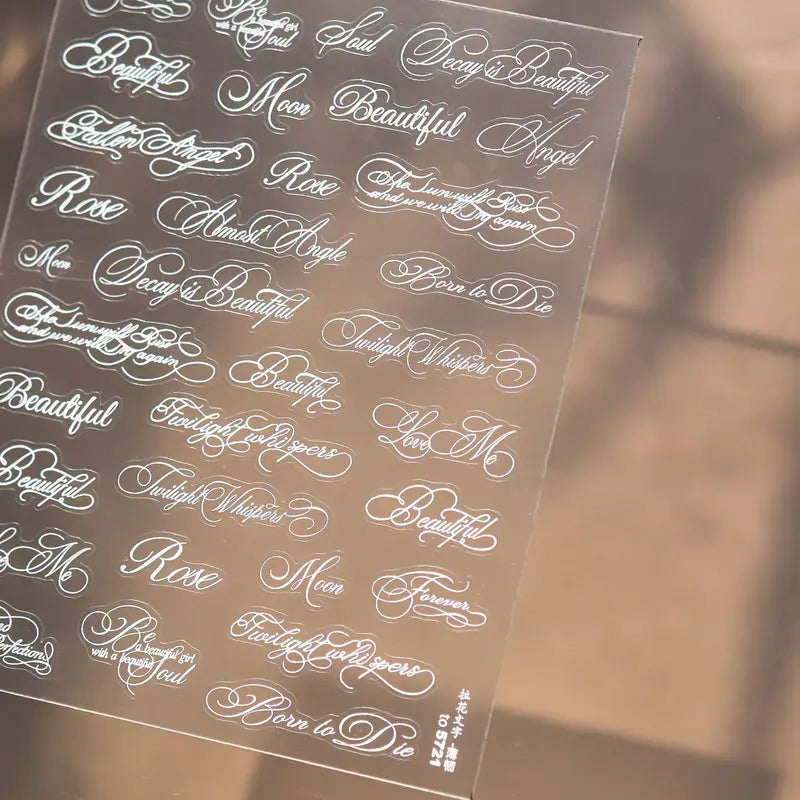 Be
a beautiful girl
with a beautiful
Soul
Soul
Decay is Beautiful
Beautiful
Moon
Beautiful
Angel
Fallen Angel
Rose
The Sun will Rise
and we will try again
Rose
Almost Angle
Born to Die
Moon
Decay is Beautiful
Twilight Whispers
The Sun will Rise
and we will try again
Beautiful
Love Me
Beautiful
Twilight whispers
Beautiful
Beautiful
Twilight Whispers
Forever
Rose
Moon
Me
Twilight whispers
Perfection
Be
a beautiful girl
with a beautiful
Soul
Born to Die
拉花文字
to 5721